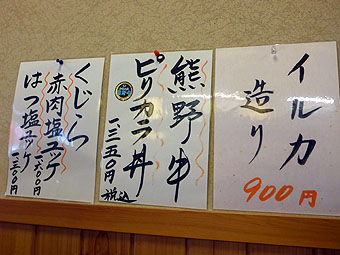 イルカ
造り
900円
熊野牛
ピリカラ丼
一三五〇円 税込
くじら
赤肉塩ユッケ
一六〇〇円
はつ塩ユッケ
一三〇〇円